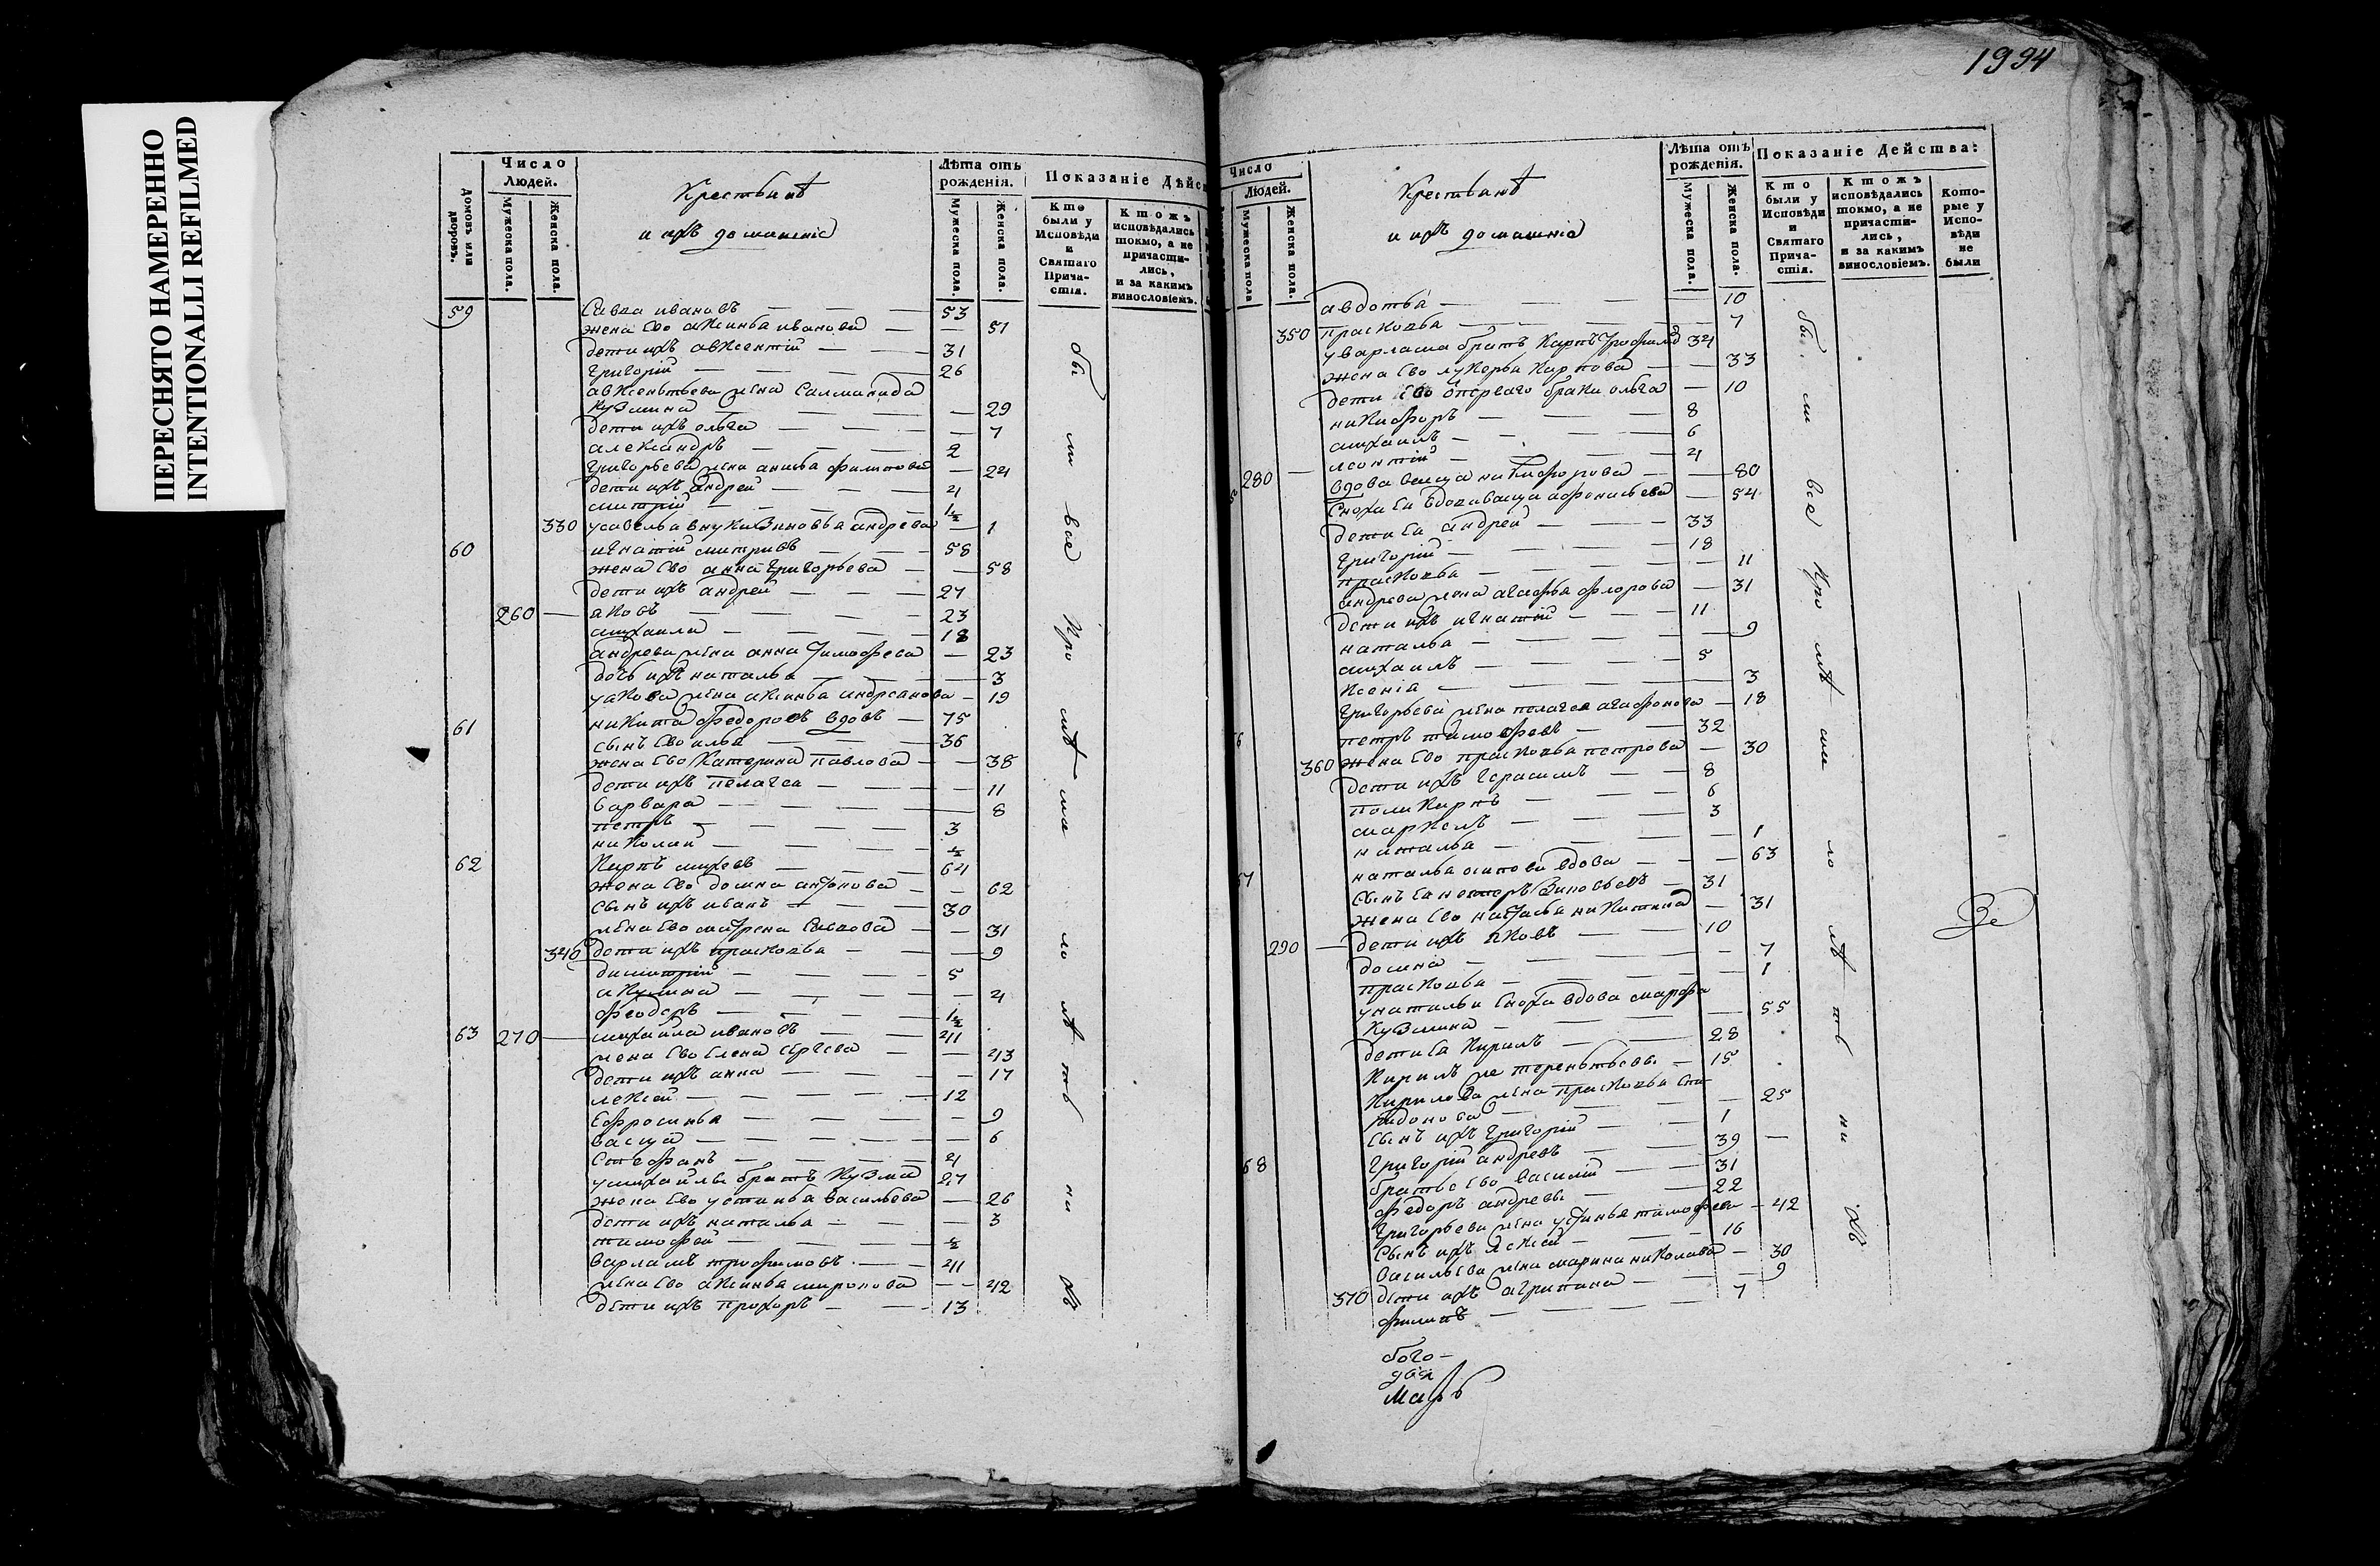 ПЕРЕСНЯТО НАМЕРЕННО
INTENTIONALLI REFILMED
1994
домовъ или дворовъ.
Число Людей.
Мужеска пола.
Женска пола.
Крестьянѣ
и ихъ домашніе
Лѣта отъ рожденія.
Мужеска пола.
Женска пола.
Показаніе Дѣйс
Кто были у Исповѣди и Святаго Прича- стія.
Ктожъ исповѣдались токмо, а не причасти- лись, и за какимъ винословіемъ.
59 Савва ивановъ 53
жена Ево аксинья иванова 51
дети ихъ авксентій 31
Григорій 26
авксентьева жена Саломанида
кузмина 29
дети ихъ ольга 7
александръ 2
Григорьева жена анисья филипова 24
дети ихъ андрей 4
митрій 1½
330 усавелья внука Зиновья андрева 1
60 игнатій митривъ 58
жена Ево анна Григорьева 58
дети ихъ андрей 27
260 яковъ 23
михаила 18
андрева жена анна Тимофеева 23
дочь ихъ наталья 3
уякова жена аксинья андреанова 19
61 никита федоровъ вдовъ 75
сынъ Ево илья 36
жена Ево Катерина павлова 38
дети ихъ пелагея 11
варвара 8
петръ 3
николай ½
62 Карпъ михеевъ 64
жена Ево домна антонова 62
сынъ ихъ иванъ 30
жена Ево матрена Саввова 31
340 дети ихъ прасковья 9
димитрій 5
акулина 4
феодоръ 1½
63 270 михайла ивановъ 41
жена Ево Елена сергева 43
дети ихъ анна 17
лексей 12
Ефросинья 9
васща 6
Стефанъ 4
умихайлы братъ Кузма 27
жена Ево устинья васильева 26
дети ихъ наталья 3
тимофей ½
варламъ трофимовъ 41
жена Ево аксинья миронова 42
дети ихъ прохоръ 13
бы ли все кро мѣ ма ло лѣ ть ни хъ
Число Людей.
Мужеска пола
Женска пола.
Крестьянѣ
и ихъ домашніе
Лѣта отъ рожденія.
Мужеска пола.
Женска пола.
Показаніе Действа:
Кто были у Исповѣди и Святаго Прича- стія.
Ктожъ исповѣдались токмо, а не причасти- лись, и за какимъ винословіемъ.
Кото- рые у Испо- вѣди не были
авдотья 10
350 прасковья 7
уварлама братъ Карпъ Трофимо 34
жена Ево лукерья Карпова 33
дети Ево отперваго брака ольга 10
никифоръ 8
михаилъ 6
леонтій 4
280 вдова васща никифорова 80
Сноха Ея вдова васща афонасьева 54
дети Ея андрей 33
Григорій 18
прасковья 11
андрева жена агафья флорова 31
дети ихъ игнатій 11
наталья 9
михаилъ 5
Ксенія 3
Григорьева жена пелагея агафонова 18
6 петръ тимофеевъ 32
360 жена Ево прасковья петрова 30
дети ихъ Герасимъ 8
поликарпъ 6
маркелъ 3
наталья 1
наталья осипова вдова 63
сынъ Ея несторъ Зиновьевъ 31
жена Ево настасья никитина 31
290 дети ихъ яковъ 10
домна 7
прасковья 1
унатальи сноха вдова марфа
Кузмина 55
дети Ея Кирилъ 28
Кирилъ же терентьевъ 15
Кирилова жена прасковья Спи-
ридонова 25
сынъ ихъ Григорій 1
68 Григорій андревъ 39
братья Ево василій 31
федоръ андревы 22
Григорьева жена устинья тимофеева 42
Сынъ ихъ лексей 16
васильева жена марина николаева 30
370 дети ихъ агрипина 9
филипъ 7
бы ли все кро мѣ ма ло лѣ ть ни хъ
бого-
Марѳ